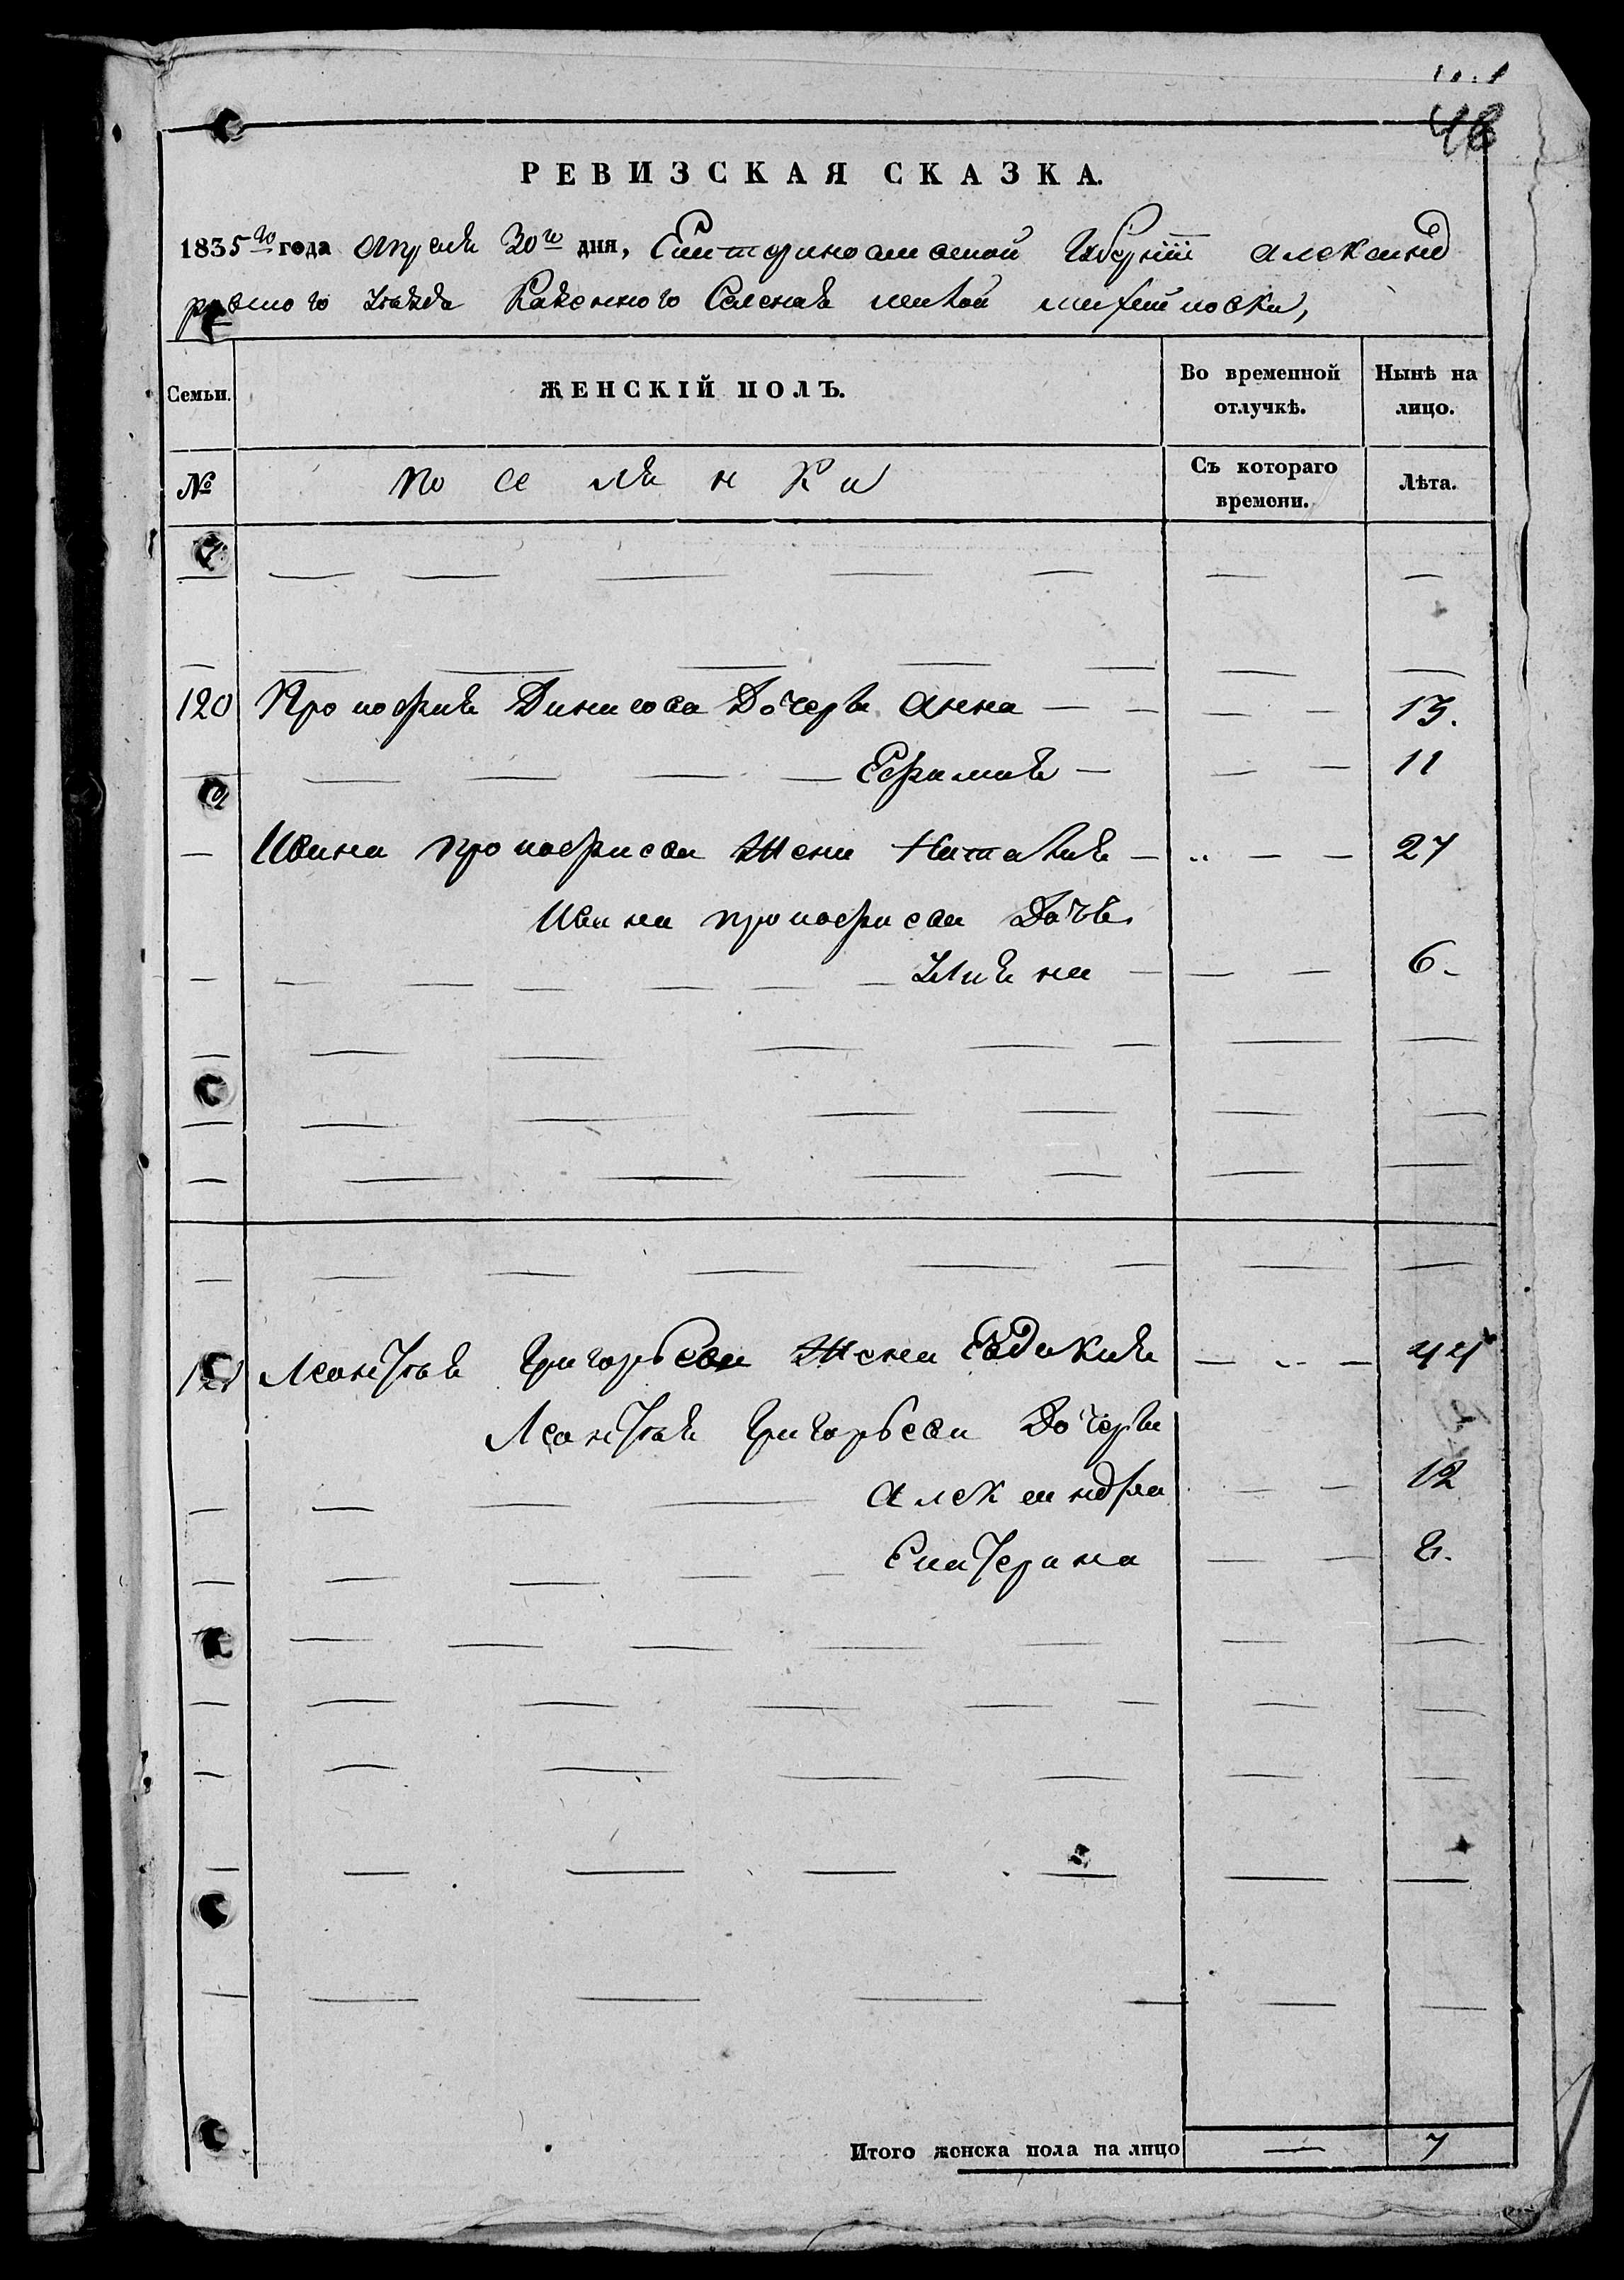 48
РЕВИЗСКАЯ СКАЗКА.
1835го года Апреля 30го дня, Екатеринославской Губернiи Александ
ровского уезда Казенного Селения
Семьи. ЖЕНСКІЙ ПОЛЪ. Во временной отлучкѣ. Нынѣ на лицо.
№ поселянки Съ котораго времени. Лѣта.
120 Прокофия Динисова Дочери Анна 13.
Ефимия 11
Ивана Прокофиева жена Наталия 27
Ивана прокофиева Дочь
Улияна 6
121 Леонтия Григорьева жена Евдокия 44
Леонтия Григорьева Дочери
Александра 12
Екатерина 8.
Итого женска пола на лицо — 7